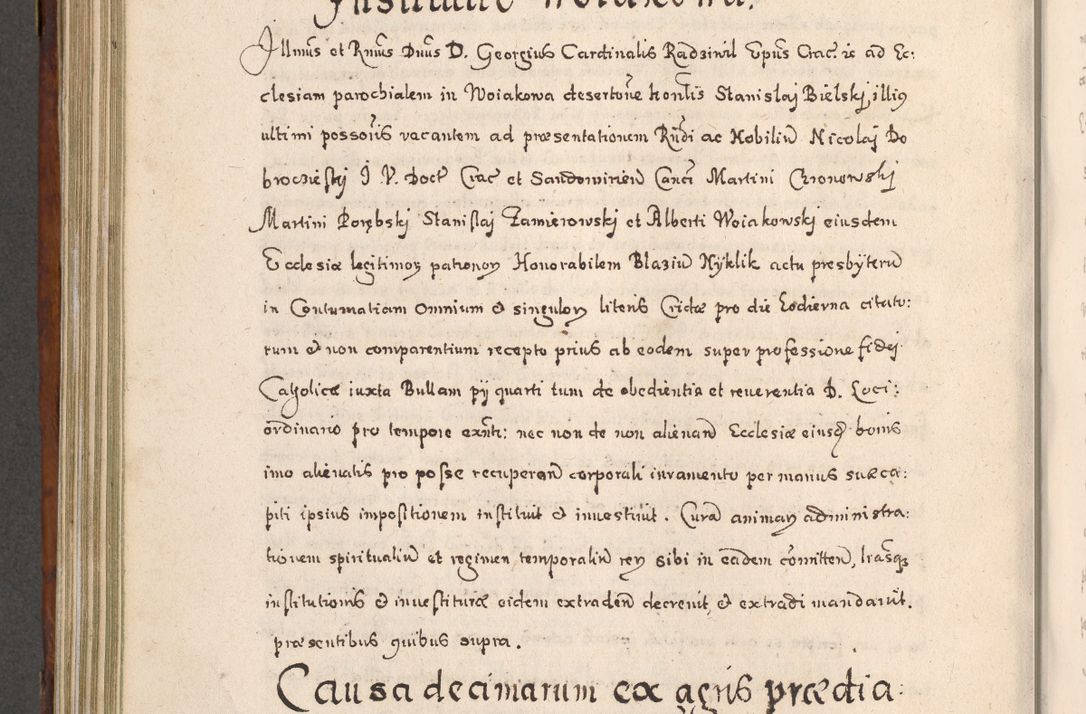 Institutio Woiakowa.
Illmus et Rmus Dnus D. Georgius Cardinalis Radziwil Epus Crac. &c ad Ec:
clesiam parochialem in Woiakowa desertione honlis Stanislaj Bielskj, illi9
ultimi possoris vacantem ad præsentationem Rndi ac Nobiliu Nicolaj Do
brocziefskj I. V. Doct Crac et Sandomirien Canci Martini Czronowskj
Martini Porębskj Stanislaj Zamierowskj et Alberti Woiakowskj eiusdem
Ecclesiæ legitimor patronor Honorabilem Blaziu Nyklik actu presbyteru
in Contumatiam omnium & singulor literis Crictæ pro die hodierna citato:
rum & non comparentium recepto prius ab eodem super professione fidej
Catholicæ iuxta Bullam pij quarti tum de obedientia et reuerentia D. Loci:
ordinario pro tempore exnti: nec non de non alienand Ecclesiæ eiusd bonis
imo alienatis pro posse recuperand corporali iuramento per manus suæ ca:
piti ipsius impositionem instituit & inuestiuit. Cura animar administra:
tionem spiritualiu et regimen temporaliu rer sibi in eadem comitten, lrasq3
institutionis & inuestituræ eidem extraden decreuit, & extradi mandauit.
præsentibus quibus supra.
Causa decimarum ex agris prædia: